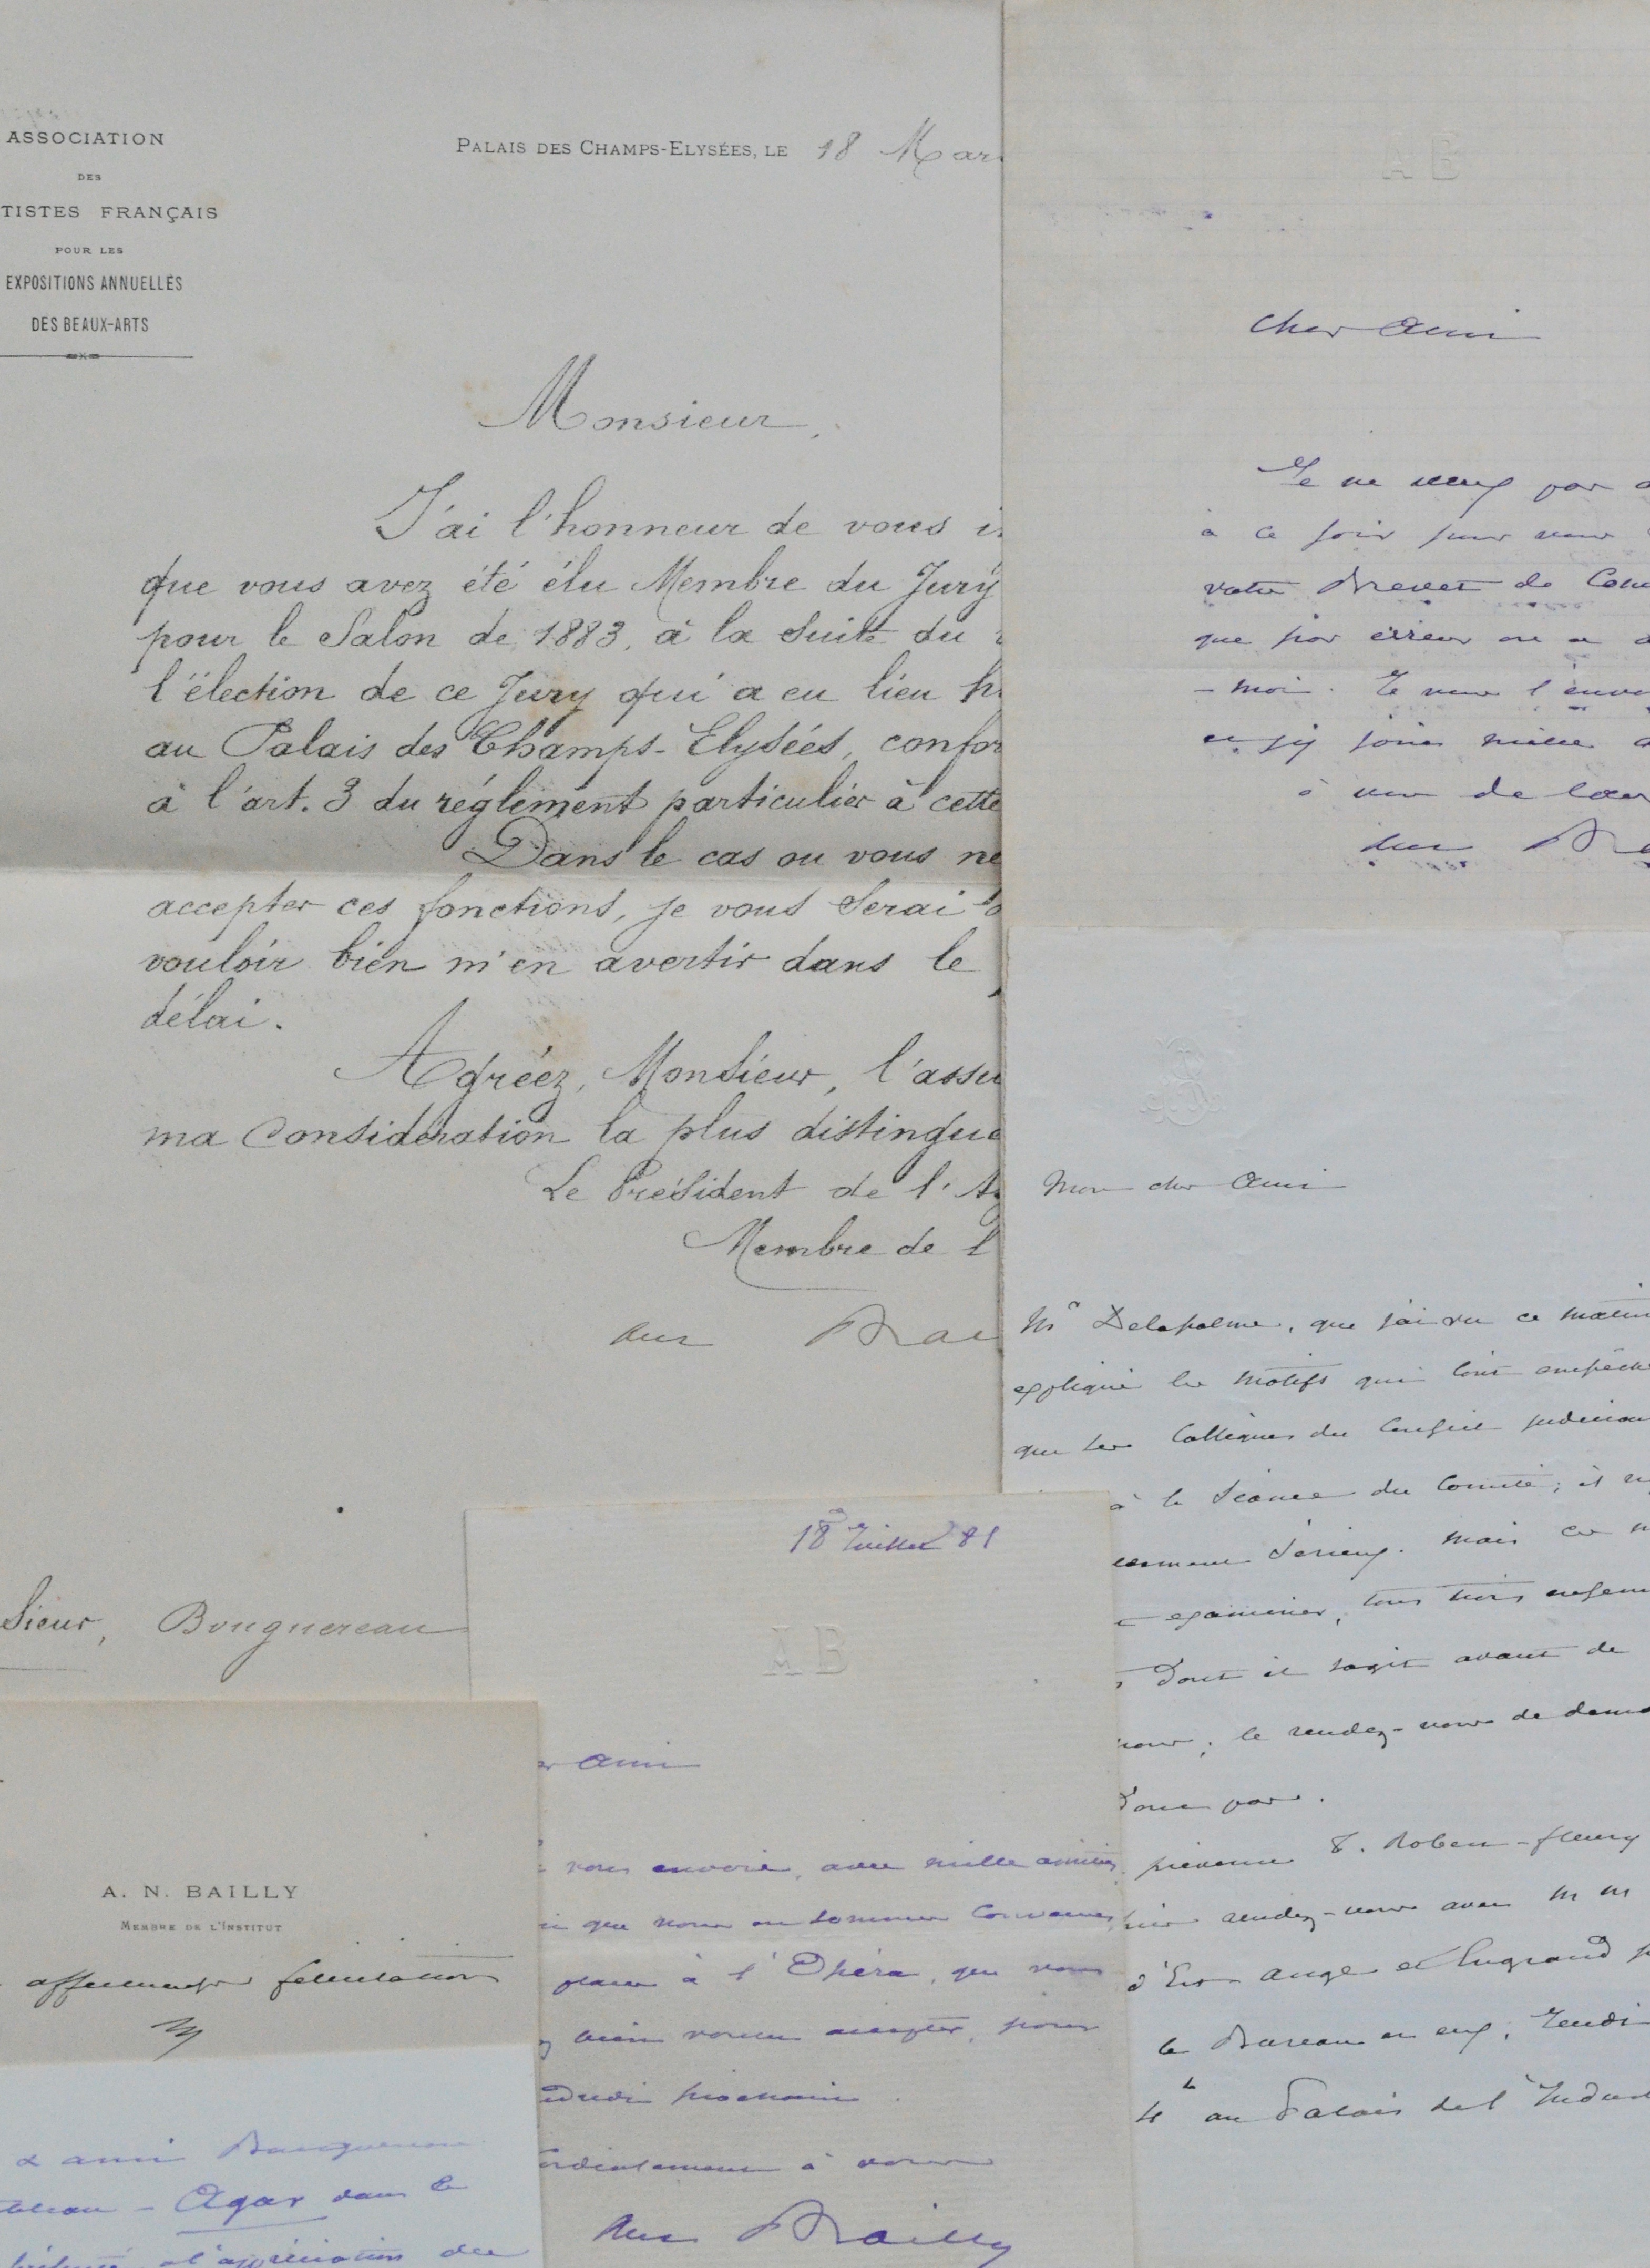 ASSOCIATION
DES
TISTES FRANÇAIS
POUR LES
EXPOSITIONS ANNUELLES
DES BEAUX-ARTS
PALAIS DES CHAMPS-ELYSÉES, LE 18 Mar
Monsieur,
J'ai l'honneur de vous
que vous avez été élu Membre du Jury
pour le Salon de 1883, à la suite du
l'élection de ce Jury qui a eu lieu
au Palais des Champs-Elysées, confor
à l'art. 3 du réglement particulier à cette
Dans le cas ou vous ne
accepter ces fonctions, je vous serai
vouloir bien m'en avertir dans le
délai.
Agréez, Monsieur, l'assu
ma considération la plus distingué
Le Président de l'A
Membre de l
Bai
sieur, Bouguereau
AB
Cher Ami
Je ne veux pas
à ce soir pour vous
votre Brevet de Com
que par erreur on a
moi. Je vous l'envo
et j'y joins mille
à vous de coeur
Mon cher Ami
Mr Delapalme, que j'ai vu ce matin
expliqué les motifs qui l'ont empêch
que ses Collègues du Conseil judiciair
à la Séance du Comité; il
sérieux. Mais ce
examiner, tous trois ensem
dont il s'agit avant de
le rendez-vous de dema
donc pas.
prévenu T. Robert-Fleury
rendez-vous avec M M
d'Ange et Lugrand
le Bureau en eux, Jeudi
4h au Palais de l'Indust
18 Juillet 81
AB
Ami
vous envoie, avec mille amitiés
que nous en sommes convenus
place à l'Opéra, que vous
bien voulu accepter, pour
prochain.
ordialement à vous
Bailly
A. N. BAILLY
MEMBRE DE L'INSTITUT
affectueuses félicitations
ami Bouguereau
bleau - Agar dans le
l'appréciation des